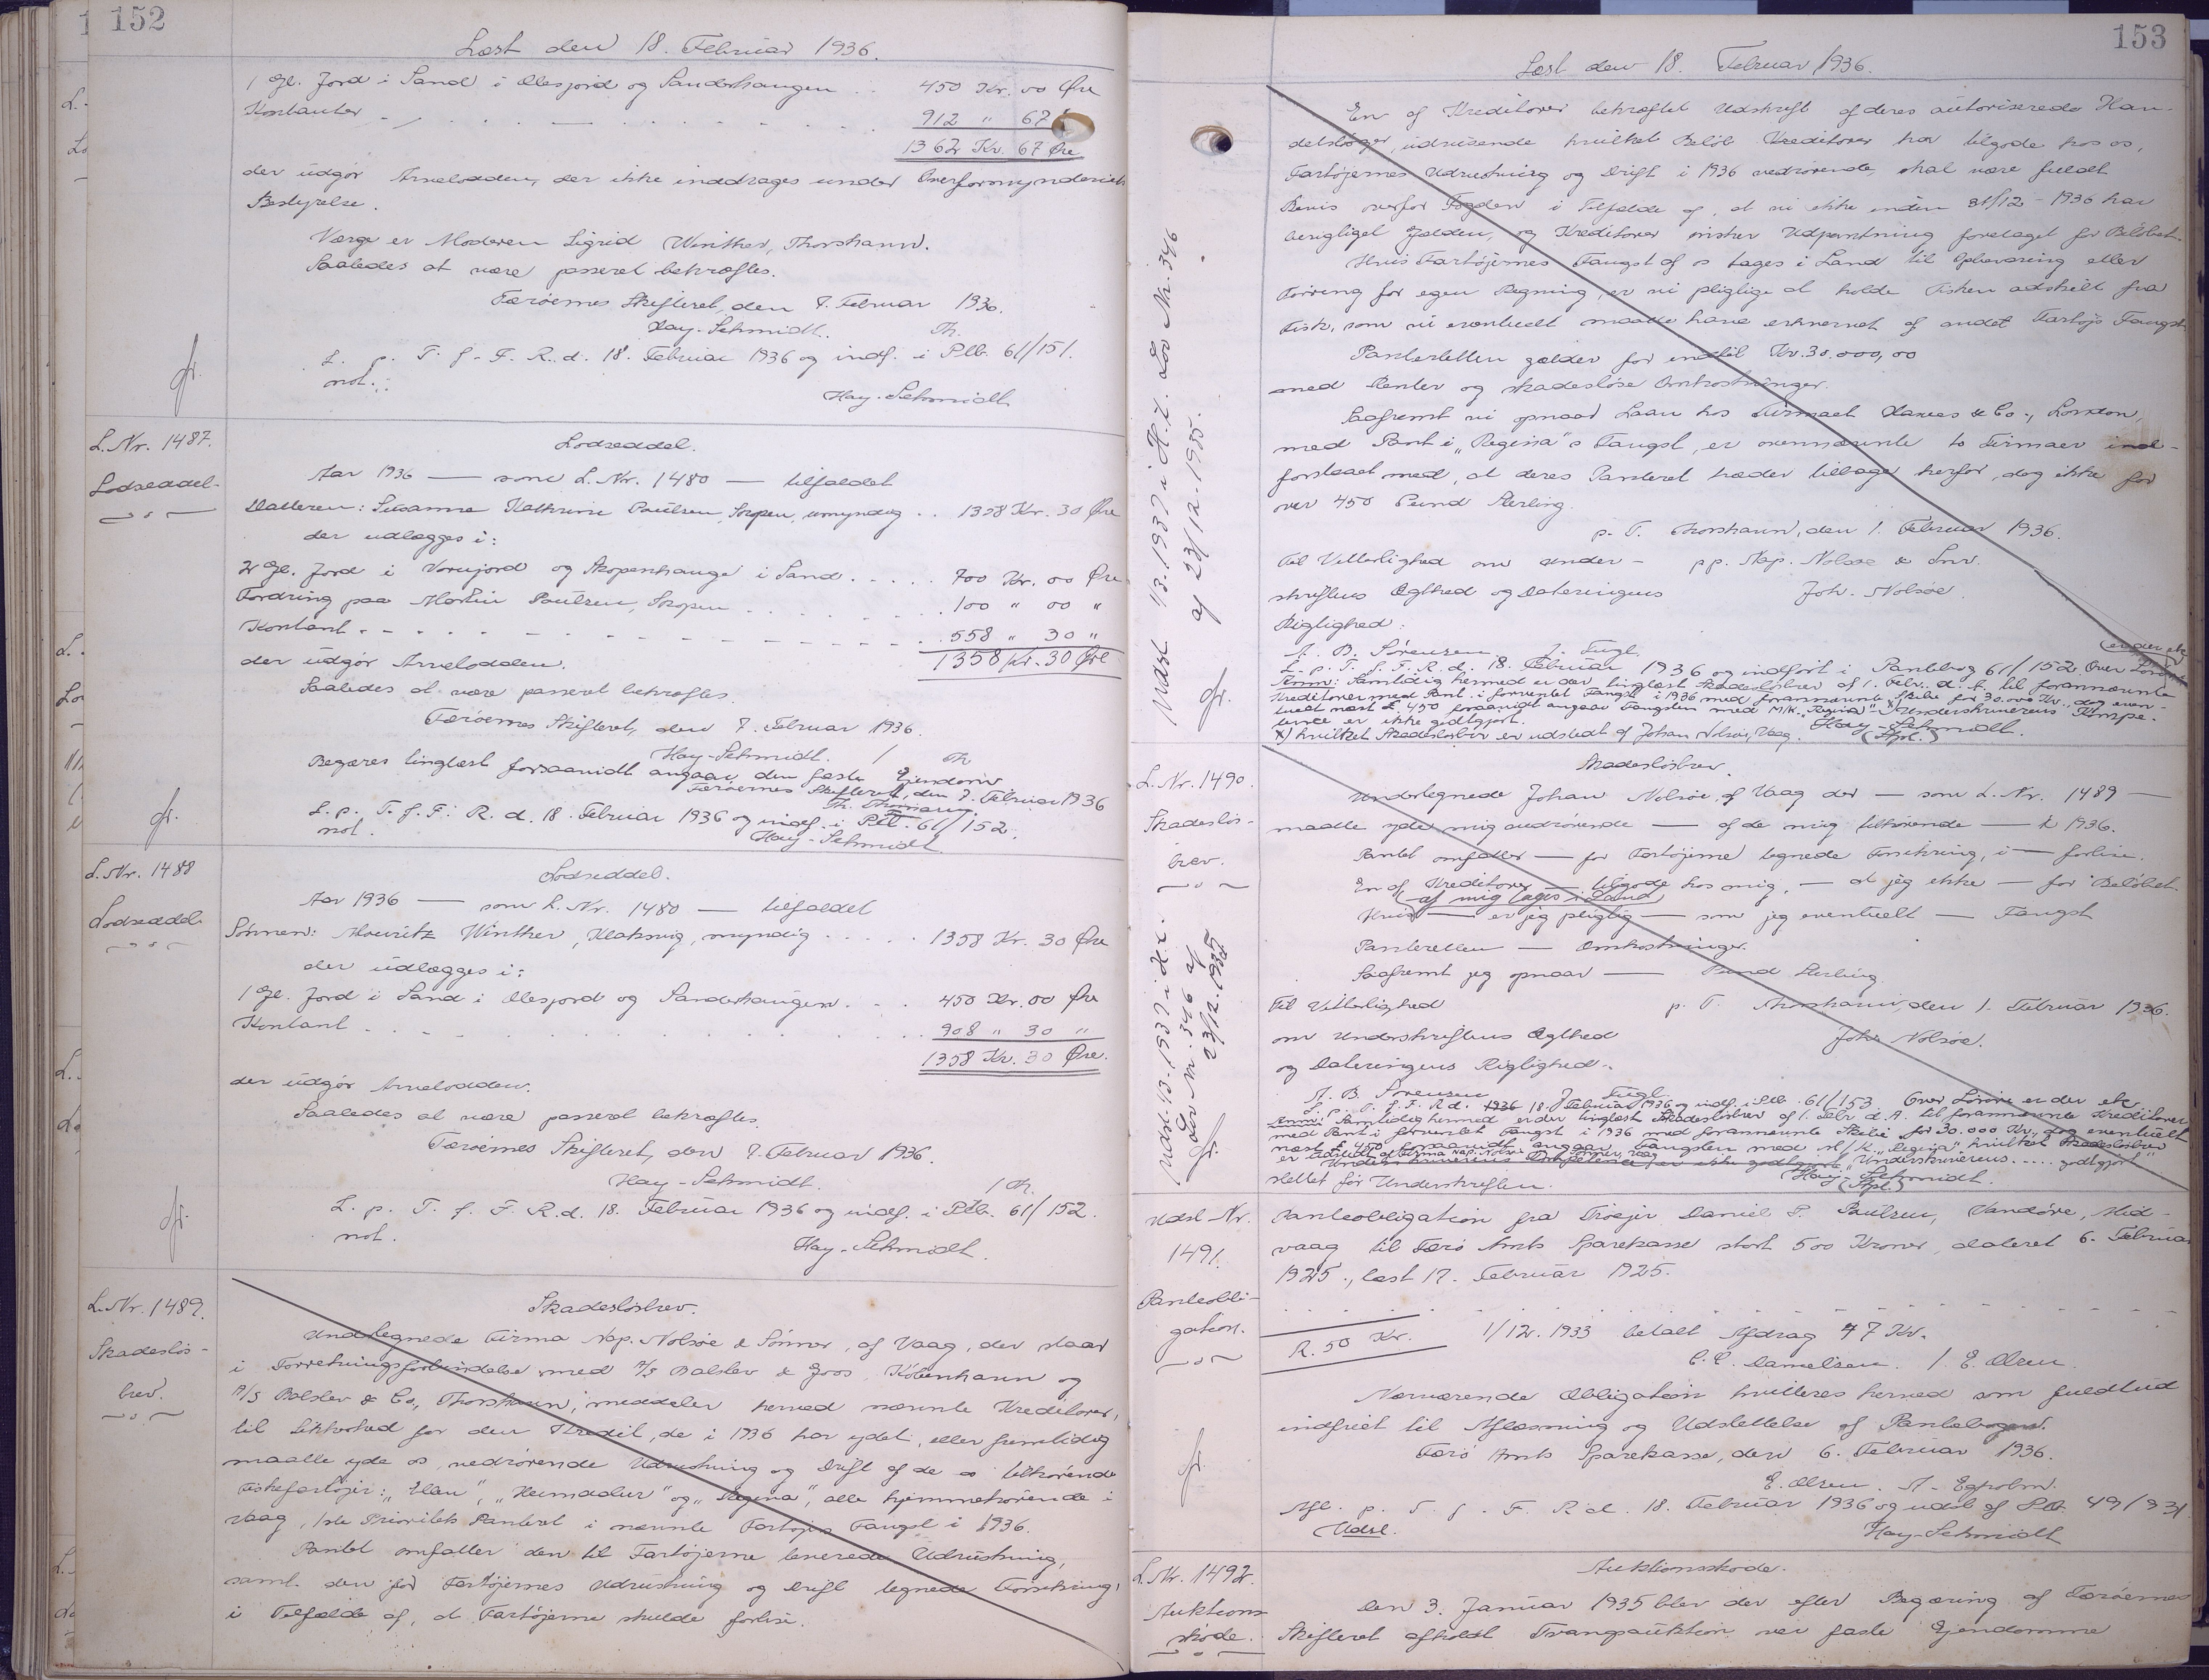 152
Læst den 18. Februar 1936.
1 Gl. Jord i Sand i Olesjord og Sandshaugen . . 450 Kr. 00 Øre
Kontanter - . . . . 912 " 67
1362 Kr. 67 Øre
der udgør Arvelodden, der ikke inddrages under Overformynderiets
Bestyrelse.
Værge er Moderen Sigrid Winther, Thorshavn.
Saaledes at være passeret bekræftes.
Færøernes Skifteret, den 7. Februar 1936.
Hay-Schmidt. Th.
L. p. T. f. F. R. d. 18. Februar 1936 og indf. i Ptb. 61/151.
not.:
Hay-Schmidt
L. Nr. 1487.
Lodseddel.
Lodseddel.
Aar 1936 — som L. Nr. 1480 — tilfaldet
Datteren: Susanne Kathrine Poulsen, Skopen, umyndig . . 1358 Kr. 30 Øre
der udlægges i:
2 Gl. Jord i Vorujord og Skopenhauge i Sand . . . . 700 Kr. 00 Øre
Fordring paa Martin Poulsen, Skopen . . . . 100 " 00 "
Kontant . - - - - 558 " 30 "
1358 Kr. 30 Øre
der udgør Arvelodden.
Saaledes at være passeret bekræftes.
Færøernes Skifteret, den 7. Februar 1936.
Hay-Schmidt. / Th
Begæres tinglæst forsaavidt angaar den faste Ejendom
Færøernes Skifteret, den 7. Februar 1936
L. p. T. f. F. R. d. 18. Februar 1936 og indf. i Ptb. 61/152.
not.
Hay-Schmidt
L. Nr. 1488
Lodseddel
Lodseddel.
Aar 1936 — som L. Nr. 1480 — tilfaldet
Sønnen: Mouritz Winther, Klaksvig, myndig . . . . . 1358 Kr. 30 Øre
der udlægges i:
1 Gl. Jord i Sand i Olesjord og Sandshaugen . . . 450 Kr. 00 Øre
Kontant . . . . 908 " 30 "
1358 Kr. 30 Øre.
der udgør Arvelodden.
Saaledes at være passeret bekræftes.
Færøernes Skifteret, den 7. Februar 1936.
Hay-Schmidt. / Th.
L. p. T. f. F. R. d. 18. Februar 1936 og indf. i Ptb. 61/152.
not.
Hay-Schmidt.
L. Nr. 1489.
Skadesløs-
brev.
Skadesløsbrev.
Undertegnede Firma Nap. Nolsøe & Sønner, af Vaag, der staar
i Forretningsforbindelse med A/S Balslev & Joos, København og
A/S Balslev & Co., Thorshavn, meddeler herved nævnte Kreditorer,
til Sikkerhed for den Kredit, de i 1936 har ydet, eller fremtidig
maatte yde os, vedrørende Udrustning og Drift af de os tilhørende
Fiskefartøjer: "Elan", "Heimdalur" og "Regina", alle hjemmehørende i
Vaag, 1ste Prioritets Panteret i nævnte Fartøjers Fangst i 1936.
Pantet omfatter den til Fartøjerne leverede Udrustning,
samt den for Fartøjernes Udrustning og Drift tegnede Forsikring,
i Tilfælde af, at Fartøjerne skulde forlise.
153
Læst den 18. Februar 1936.
En af Kreditorer bekræftet Udskrift af deres autoriserede Han-
delsbøger, udvisende hvilket Beløb Kreditorer har tilgode hos os,
Fartøjernes Udrustning og Drift i 1936 vedrørende, skal være fuldt
Bevis overfor Fogden i Tilfælde af, at vi ikke inden 31/12 - 1936 har
berigtiget Gælden, og Kreditorer ønsker Udpantning foretaget for Beløbet.
Hvis Fartøjernes Fangst af os tages i Land til Opbevaring eller
Tørring for egen Regning, er vi pligtige at holde Fisken adskilt fra
Fisk, som vi eventuelt maatte have erhvervet af andet Fartøjs Fangst.
Panteretten gælder for indtil Kr. 30.000,00
med Renter og skadesløse Omkostninger.
Saafremt vi opnaar Laan hos Firmaet Hawes & Co., London,
med Pant i "Regina"s Fangst, er ovennævnte to Firmaer ind-
forstaaet med, at deres Panteret træder tilbage herfor, dog ikke for
over 450 Pund Sterling.
p. T. Thorshavn, den 1. Februar 1936.
Til Vitterlighed om Under- pp. Nap. Nolsøe & Snr.
skriftens Ægthed og Dateringens Joh. Nolsøe.
Rigtighed:
A. B. Sørensen J. Fugl.
L. p. T. f. F. R. d. 18. Februar 1936 og indført i Pantebog 61/152. Over
Anm: Samtidig hermed er der tinglæst Skadesløsbrev af 1. Febr. d. A. til forannævnte
Kreditorer med Pant i forventet Fangst i 1936 med forannævnte Skibe for 30.000 Kr., dog even-
tuelt næst £. 450 forsaavidt angaar Fangsten med M/K. "Regina" x) Underskriverens Kompe-
tence er ikke godtgjort.
Hay-Schmidt.
x) hvilket Skadesløsbrev er udstedt af Johan Nolsøe, Vaag. (Spl.)
Udsl 43-1937 i H. t. Lov Nr. 346
af 23/12-1935.
L. Nr. 1490.
Skadesløs-
brev.
Skadesløsbrev.
Undertegnede Johan Nolsøe, af Vaag der — som L. Nr. 1489 —
maatte yde mig vedrørende — af de mig tilhørende — i 1936.
Pantet omfatter — for Fartøjerne tegnede Forsikring, i — forlise.
En af Kreditorer — tilgode hos mig, — at jeg ikke — for Beløbet.
af mig tages i Land
Hvis — er jeg pligtig — som jeg eventuelt — Fangst
Panteretten — Omkostninger.
Saafremt jeg opnaar — Pund Sterling.
Til Vitterlighed p. T. Thorshavn, den 1. Februar 1936.
om Underskriftens Ægthed Joh. Nolsøe.
og Dateringens Rigtighed.
A. B. Sørensen J. Fugl
L. p. T. f. F. R. d. 1936 18. Februar 1936 og indf. i Ptb. 61/153. Over er der etc
Anm: Samtidig hermed er der tinglæst Skadesløsbrev af 1. Febr. d. A. til forannævnte Kreditorer
med Pant i forventet Fangst i 1936 med forannævnte Skibe for 30.000 Kr., dog eventuelt
næst £ 450 forsaavidt angaar Fangsten med M/K. "Regina" hvilket Skadesløsbrev
er udstedt af Firma Nap. Nolsøe & Sønner, Vaag
Underskriverens Kompetence er ikke godtgjort. "Underskriverens . . . . godtgjort"
slettet før Underskriften. Hay-Schmidt.
(Spl.)
Udsl. 43-1937 i H.t.
Lov Nr. 346 af
23/12-1935
Udsl Nr.
1491.
Panteobli-
gation.
Panteobligation fra Trøejer Daniel P. Poulsen, Vandøre, Mid-
vaag til Færø Amts Sparekasse stort 500 Kroner, dateret 6. Februar
1925., læst 17. Februar 1925.
R. 50 Kr. 1/12. 1933 betalt Afdrag 47 Kr.
C. C. Danielsen. / E. Olsen.
Nærværende Obligation kvitteres herved som fuldtud
indfriet til Aflæsning og Udslettelse af Pantebogen.
Færø Amts Sparekasse, den 6. Februar 1936.
E. Olsen. A. Egholm.
Afl. p. T. f. F. R. d. 18. Februar 1936 og udsl. af Ptb. 49/
Udsl.
Hay-Schmidt
L. Nr. 1492.
Auktions-
skøde.
Auktionsskøde.
Den 3. Januar 1935 blev der efter Begæring af Færøernes
Skifteret afholdt Tvangsauktion over faste Ejendomme